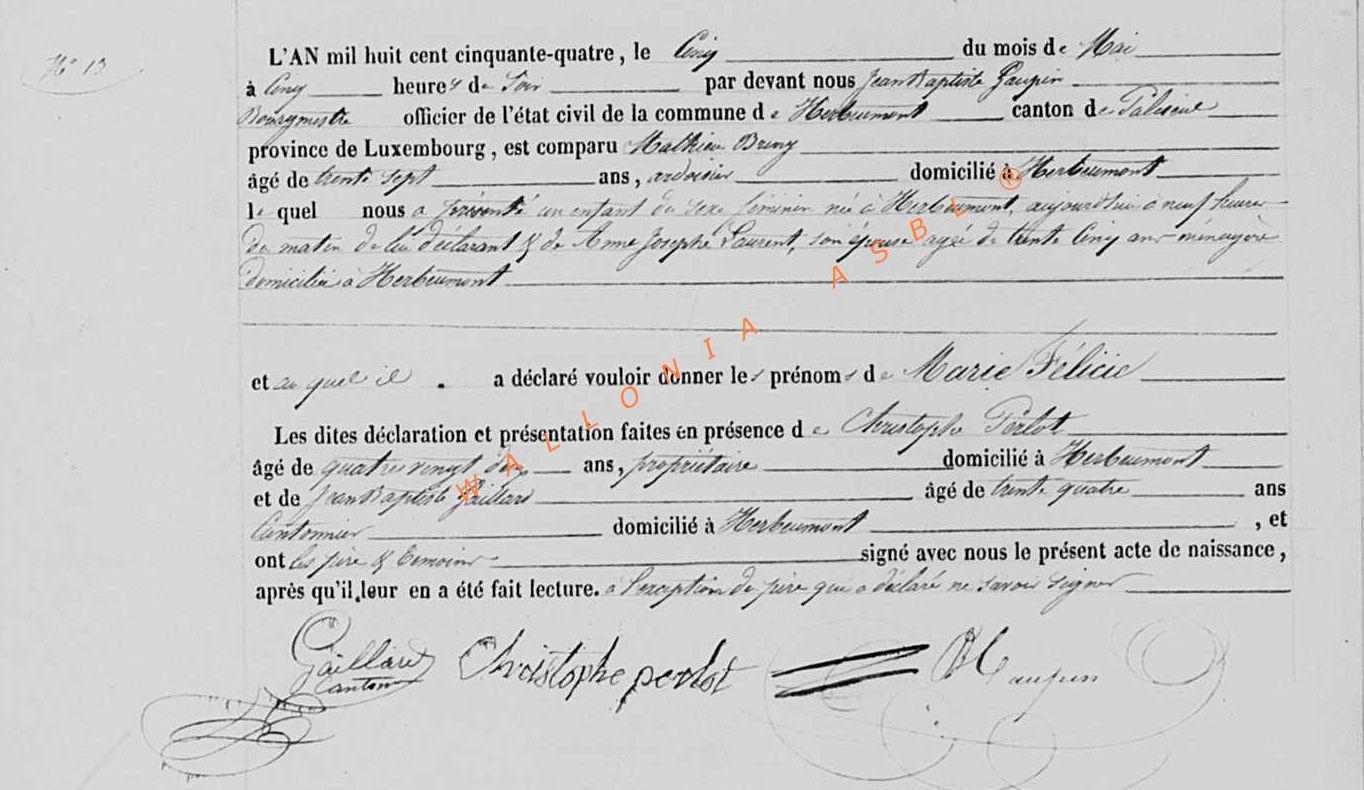 N° 13
L'AN mil huit cent cinquante-quatre, le Cinq du mois de Mai
à Cinq heures de Soir par devant nous Jean Baptiste
Bourgmestre officier de l'état civil de la commune de Herbeumont canton de Paliseul
province de Luxembourg, est comparu Mathieu
âgé de trente sept ans, ardoisier domicilié à Herbeumont
le quel nous a présenté un enfant du sexe féminin née à Herbeumont, aujourd'hui à neuf heures
du matin de lui déclarant & de Anne Josephe Laurent, son épouse agée de trente Cinq ans ménagère
domiciliée à Herbeumont
et au quel il a déclaré vouloir donner les prénoms de Marie Félicie
Les dites déclaration et présentation faites en présence de Christophe Perlot
âgé de quatre vingt ans, propriétaire domicilié à Herbeumont
et de Jean Baptiste Gaillard âgé de trente quatre ans
Cantonnier domicilié à Herbeumont, et
ont les père & témoins signé avec nous le présent acte de naissance,
après qu'il leur en a été fait lecture. à l'exception du père qui a déclaré ne savoir signer
Gaillard Christophe perlot
Cantonn
WALLONIA ASBL ®